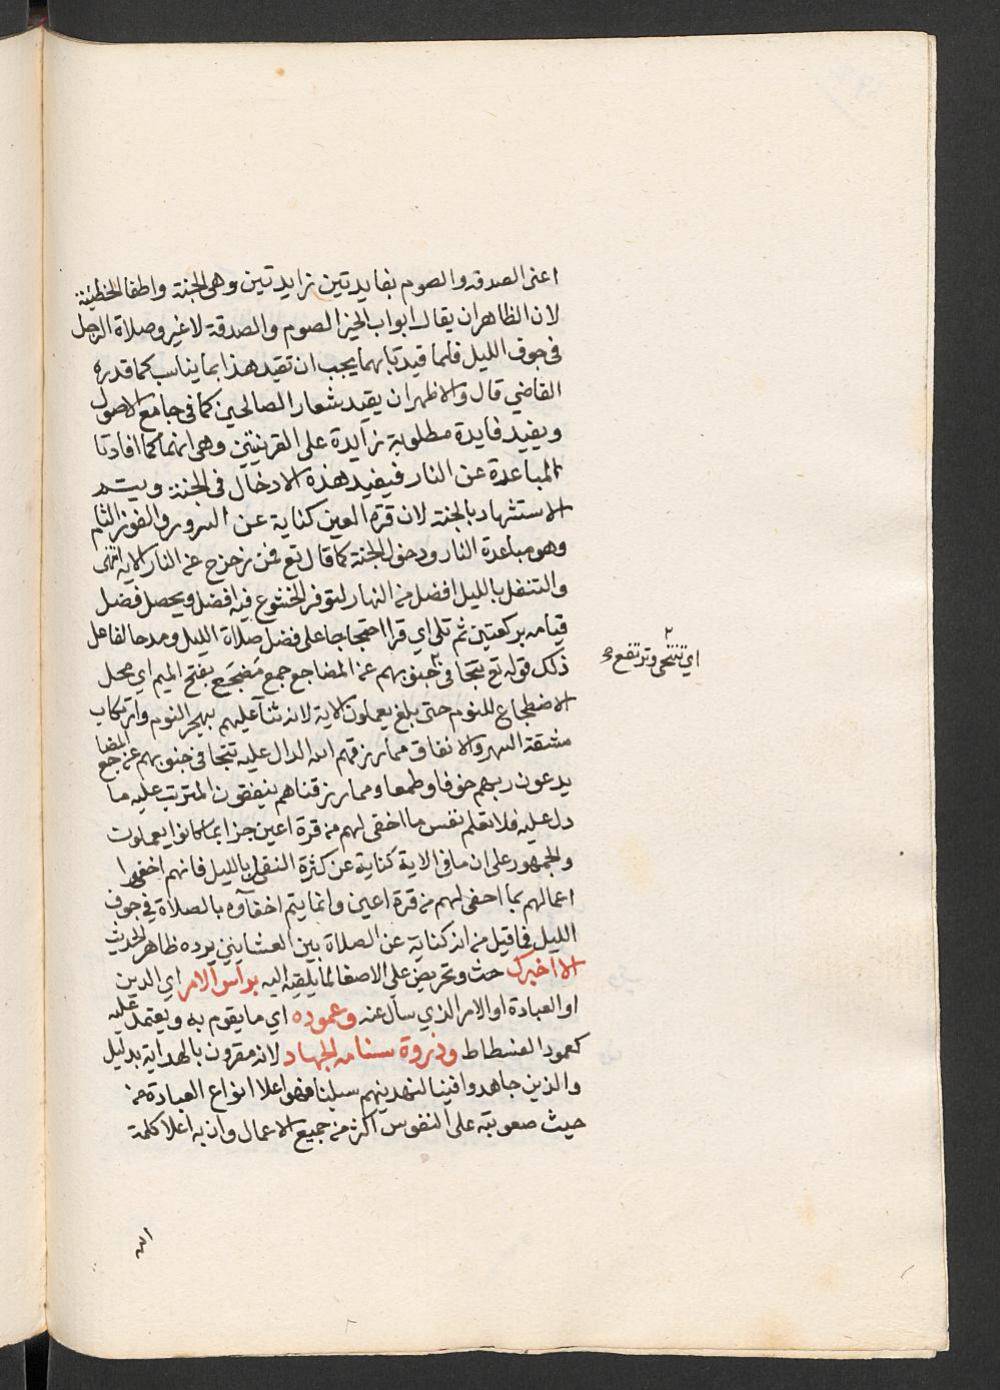 اعنى الصدقة والصوم بفايدتين زايدتين وهى الجنة واطفا الخطيئة
لان الظاهر ان يقال ابواب الخير الصوم والصدقة لا غير وصلاة الرجل
فى جوف الليل فلما قيدتا بهما يجب ان تقيد هذا بما يناسب كما قدره
القاضي قال والاظهر ان يقيد بشعار الصالحين كما فى جامع الاصول
ويفيد فايدة مطلوبة زايدة على القرينتين وهى انهما كما افادتا
المباعدة عن النار فيفيد هذه الادخال فى الجنة ويتم
الاستشهاد بالجنة لان قرة العين كناية عن السرور والفوز التام
وهو مباعدة النار ودخول الجنة كما قال تع فمن زحزح عن النار الاية انتهى
والتنفل بالليل افضل من النهار لتوفر الخشوع فيه افضل ويحصل فضل
قيامه بركعتين ثم تلى اي قرا احتجاجا على فضل صلاة الليل ومدحا لفاعل
ذلك قوله تع تتجافى ٢ جنوبهم عن المضاجع جمع مَضجَع بفتح الميم اي محل
الاضطجاع للنوم حتى بلغ يعملون الاية لانه ثنا عليهم بهجر النوم وارتكاب
مشقة السهر والانفاق مما رزقهم الله الدال عليه تتجافى جنوبهم عن المضاجع
يدعون ربهم خوفا وطمعا ومما رزقناهم ينفقون المترتب عليه ما
دل عليه فلا تعلم نفس ما اخفى لهم من قرة اعين جزا بما كانوا يعملون
والجمهور على ان ما فى الاية كناية عن كثرة النفل بالليل فانهم اخفوا
اعمالهم بما احفى لهم من قرة اعين وانما يتم اخفاوه بالصلاة في جوف
الليل فما قيل من انه كناية عن الصلاة بين العشايين يرده ظاهر الحديث
الا اخبرك حث وتحريض على الاصغا لما يلقيه اليه براس الامر اي الدين
او العبادة او الامر الذي سال عنه وعموده اي ما يقوم به ويعتمد عليه
كعمود الفسطاط وذروة سنامه الجهاد لانه مقرون بالهداية بدليل
والذين جاهدوا فينا لنهدينهم سبلنا فهو اعلا انواع العبادة من
حيث صعوبته على النفوس اكثر من جميع الاعمال وان به اعلا كلمة
٢
اي تتنحى وترتفع
الله